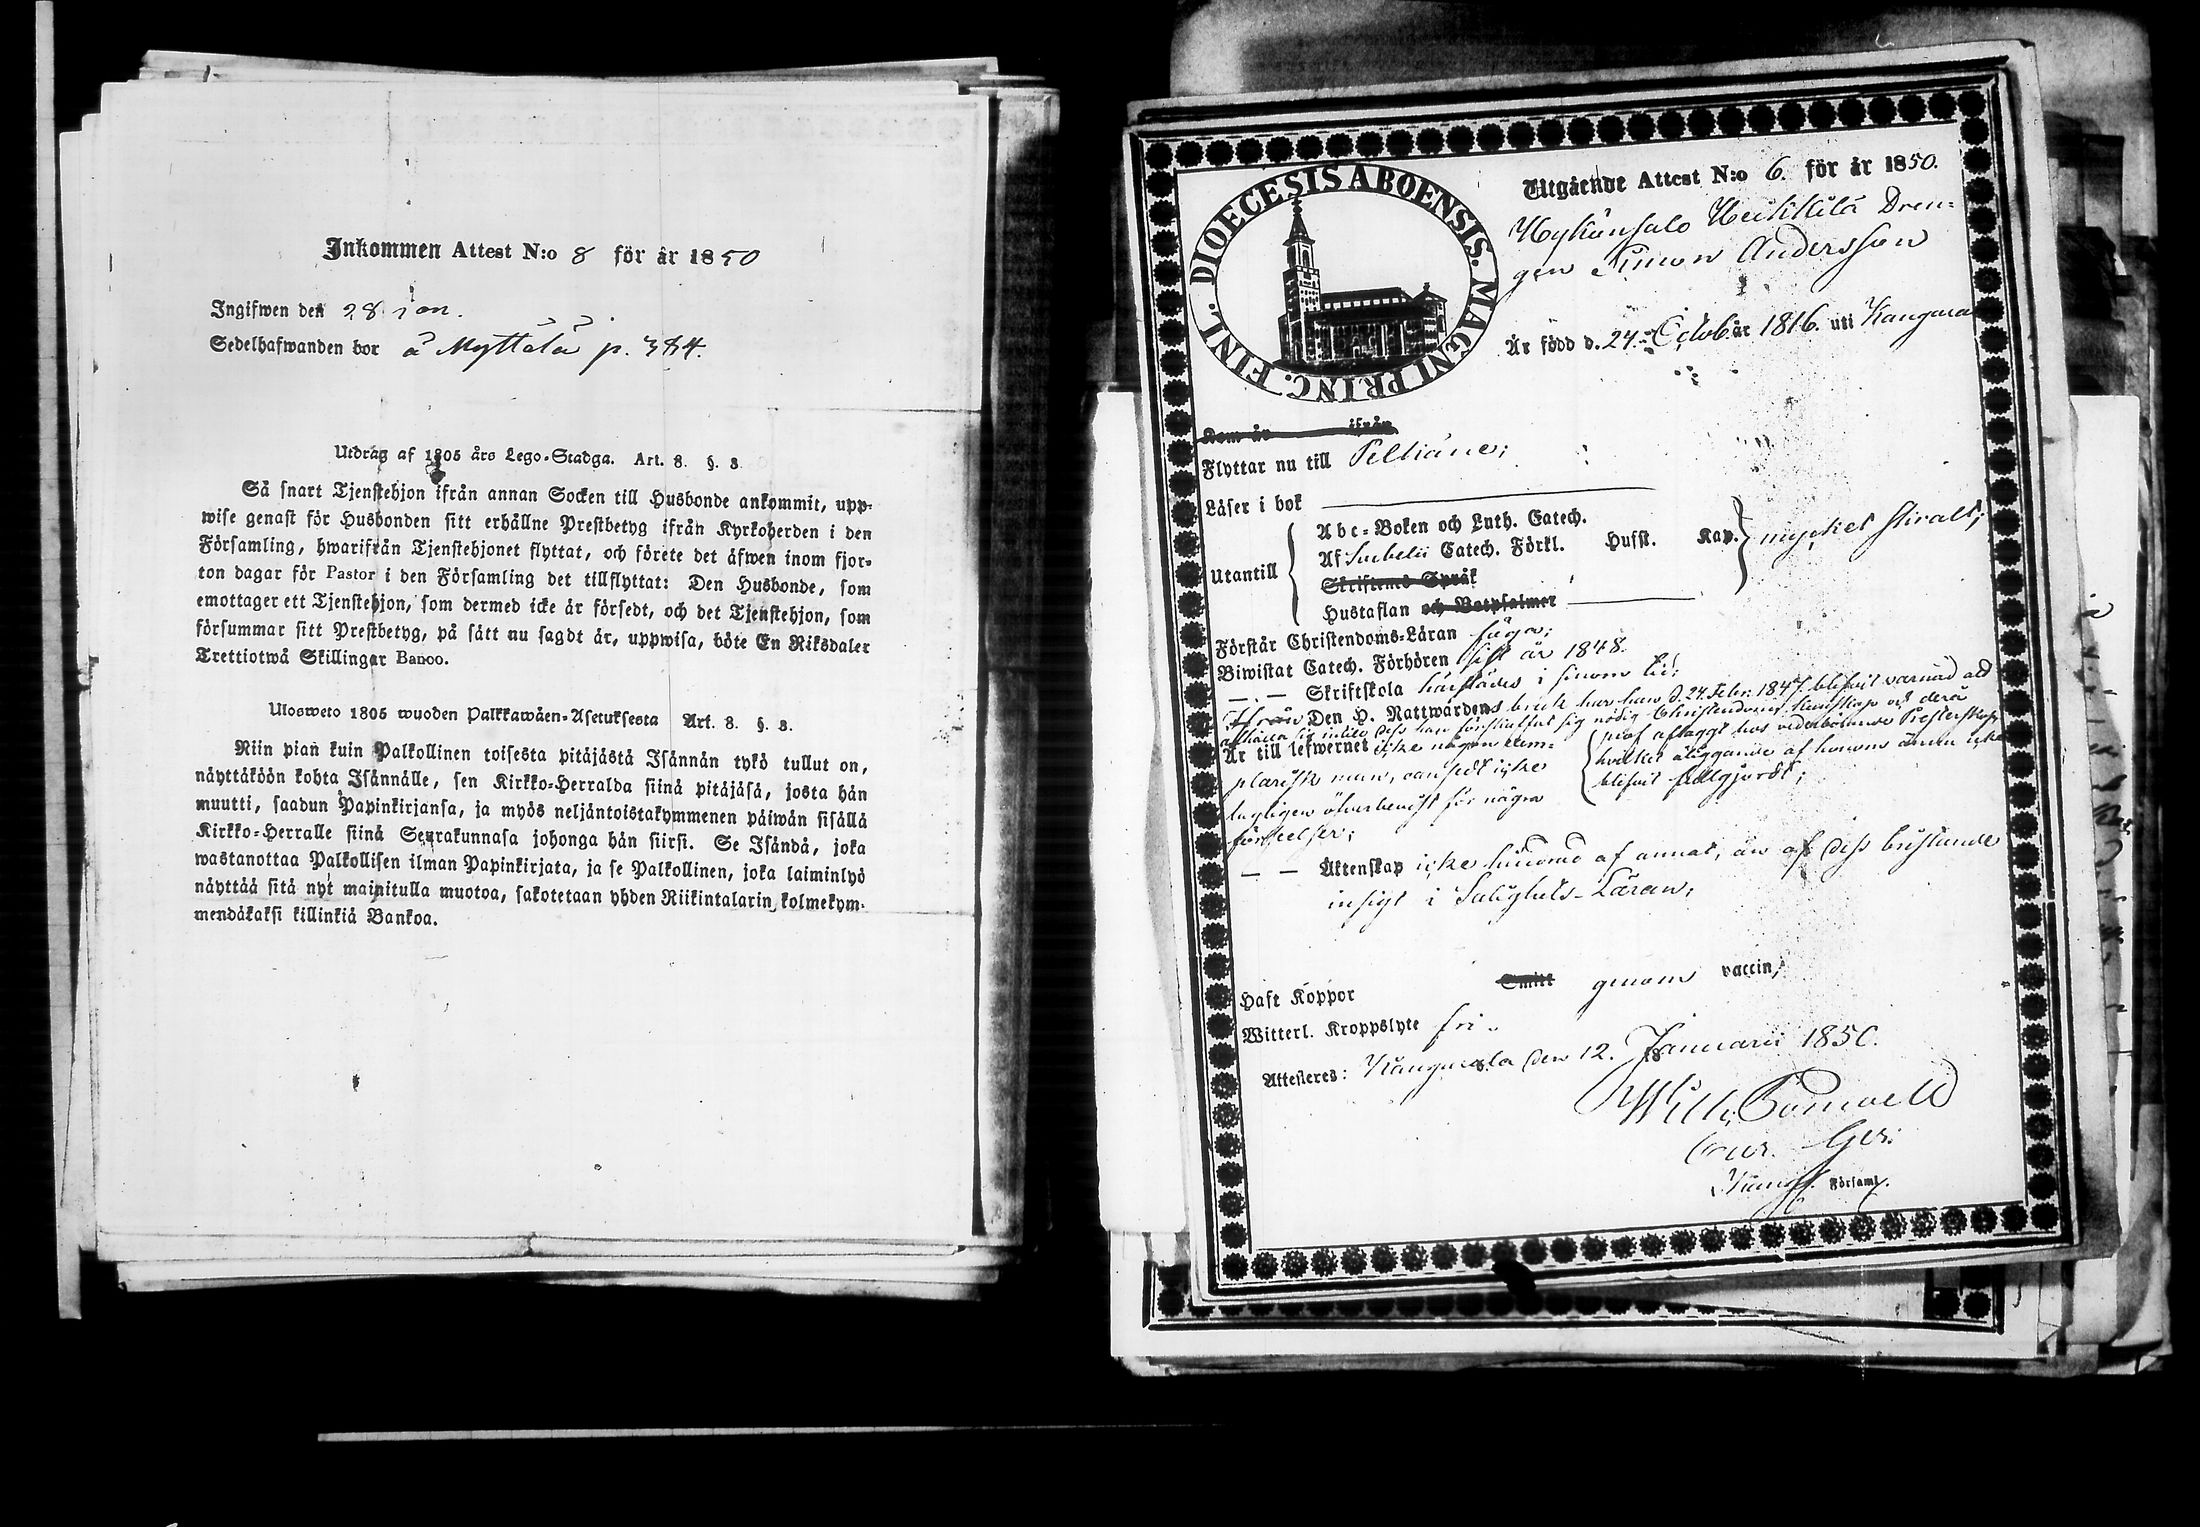 Inkommen Attest N:o 8 för år 1850
Ingifwen den 28 jan.
Sedelhafwanden bor å Myttälä p. 384.
Utdrag af 1805 års Lego-Stadga. Art. 8. §. 3.
Så snart Tjenstehjon ifrån annan Socken till Husbonde ankommit, upp-
wise genast för Husbonden sitt erhållne Prestbetyg ifrån Kyrkoherden i den
Församling, hwarifrån Tjenstehjonet flyttat, och förete det äfwen inom fjor-
ton dagar för Pastor i den Församling det tillflyttat: Den Husbonde, som
emottager ett Tjenstehjon, som dermed icke är försedt, och det Tjenstehjon, som
försummar sitt Prestbetyg, på sätt nu sagdt är, uppwisa, böte En Riksdaler
Trettiotwå Skillingar Banco.
Ulosweto 1805 wuoden Palkkawäen-Asetuksesta Art. 8. §. 3.
Niin pian kuin Palkollinen toisesta pitäjästä Isännän tykö tullut on,
näyttäköön kohta Isännälle, sen Kirkko-Herralda siinä pitäjäsä, josta hän
muutti, saadun Papinkirjansa, ja myös neljäntoistakymmenen päiwän sisällä
Kirkko-Herralle siinä Seurakunnasa johonga hän siirsi. Se Isändä, joka
wastanottaa Palkollisen ilman Papinkirjata, ja se Palkollinen, joka laiminlyö
näyttää sitä nyt mainitulla muotoa, sakotetaan yhden Riikintalarin kolmekym-
mendäkaksi killinkiä Bankoa.
DIOECESIS ABOENSIS. MAGNI PRINC. FINL.
Utgående Attest N:o 6. för år 1850.
Heikkilä Dren-
gen Simon Andersson
Är född d. 24. Octob. år 1816. uti Kangasa
Kom år ifrån
Flyttar nu till Pelkäne;
Läser i bok
Utantill
Abc-Boken och Luth. Catech.
Af Svebelii Catech. Förkl. Husst. Kap. mycket svralt;
Skriftens Språk
Hustaflan och Botpsalmer
Förstår Christendoms-Läran föga;
Biwistat Catech. Förhören sist år 1848.
— Skriftskola härstädes i sinom tid;
Ifrån Den H. Nattwardens bruk har han d. 24. Febr. 1847. blifvit varnad att
afhålla sig intill dess han förskaffat sig nödig Christendoms kunskap och derå
Är till lefwernet icke någon exem-
plarisk man, oansedt icke
lagligen öfverbevist för några
förseelser;
prof aflaggt hos vederbörande Presterskap
hvilket åliggande af honom ännu icke
blifvit fullgjordt;
— — Äktenskap icke hindrad af annat, än af dess bristande
insigt i Salighets-Läran;
Haft Koppor Smitt genom vaccin;
Witterl. Kroppslyte fri.
Attesteres: Kangasala den 12. Januarii 1850.
Församl.